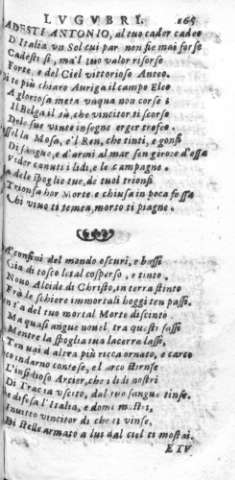 LVGVBRI. 165
CADESTI ANTONIO, al tuo cader cadeo
D'Italia vn Sol cui par non fie mai forse
Cadesti sì, ma'l tuo valor risorse
Forte, e del Ciel vittorioso Anteo.
più chiaro Auriga il campo Eleo
A gloriosa meta vnqua non corse
Il Belga il sà, che vincitor ti scorse
Dele sue vinte insegne erger trofeo.
la Mosa, e'l Ren, che tinti, e gonfi
Di sangue, e d'armi al mar sen giro: e d'ossa
Veder i lidi, e le campagne.
dele spoglie tue, de tuoi trionfi
Trionfa hor Morte e chiusa in poca fossa
Chi viuo ti temea, morto ti piagne.
confini del mondo oscuri, e bassi
Già di tosco letal cosperso, e tinto
Nouo Alcide di Christo, in terra stinto
Frà le schiere immortali hoggi ten passi.
del tuo mortal Morte discinto
Ma quasi angue nouel, tra questi sassi
Mentre la spoglia tua lacera lassi,
Ten vai d'altra più ricca ornato, e carco
indarno contese, e l'arco stinse
L'insidioso Arcier, che i lidi nostri
Di Tracia vscito, dal tuo sangue tinse.
difesa l'Italia, e domi mostri,
Inuitto vincitor di che ti vinse,
Di stelle armato a lui dal ciel ti mostri.